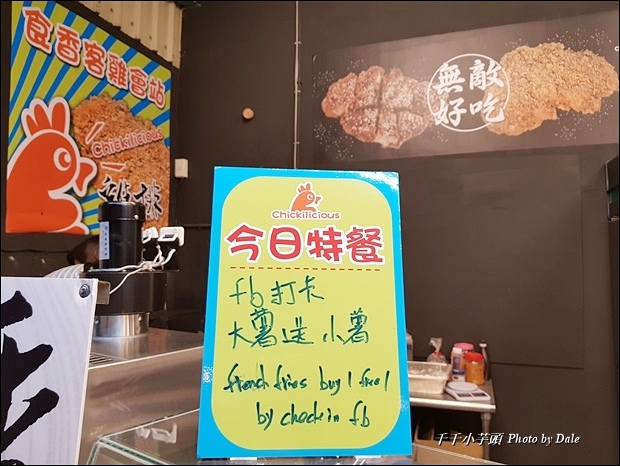 食香客雞會站
Chickilicious
雞排
無敵
好吃
Chickilicious
今日特餐
fb打卡
大薯送小薯
french fries buy 1 free 1
by check in fb
千千小芋頭 Photo by Dale